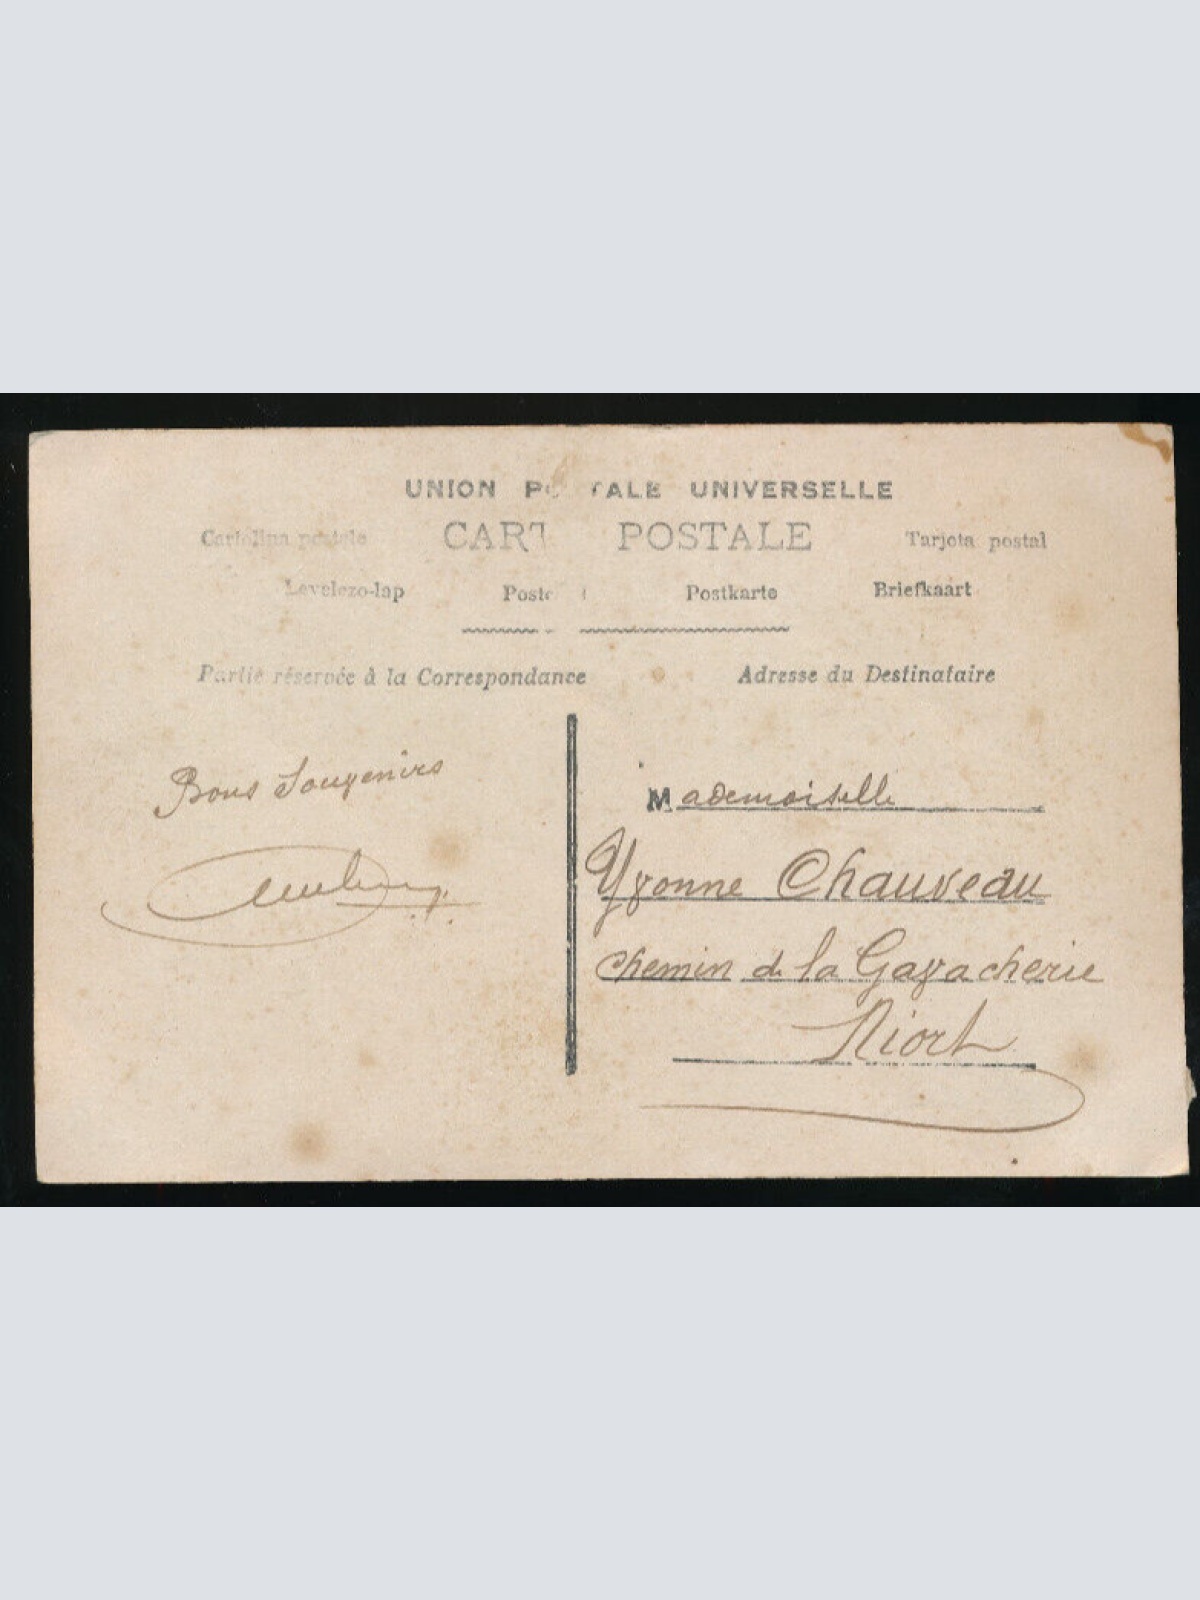 UNION POSTALE UNIVERSELLE
Cartolina postale CARTE POSTALE Tarjota postal
Levelezo-lap Postcard Postkarte Briefkaart
Partie réservée à la Correspondance Adresse du Destinataire
Bons Souvenirs
Mademoiselle
Yvonne Chauveau
chemin de la Gavacherie
Niort